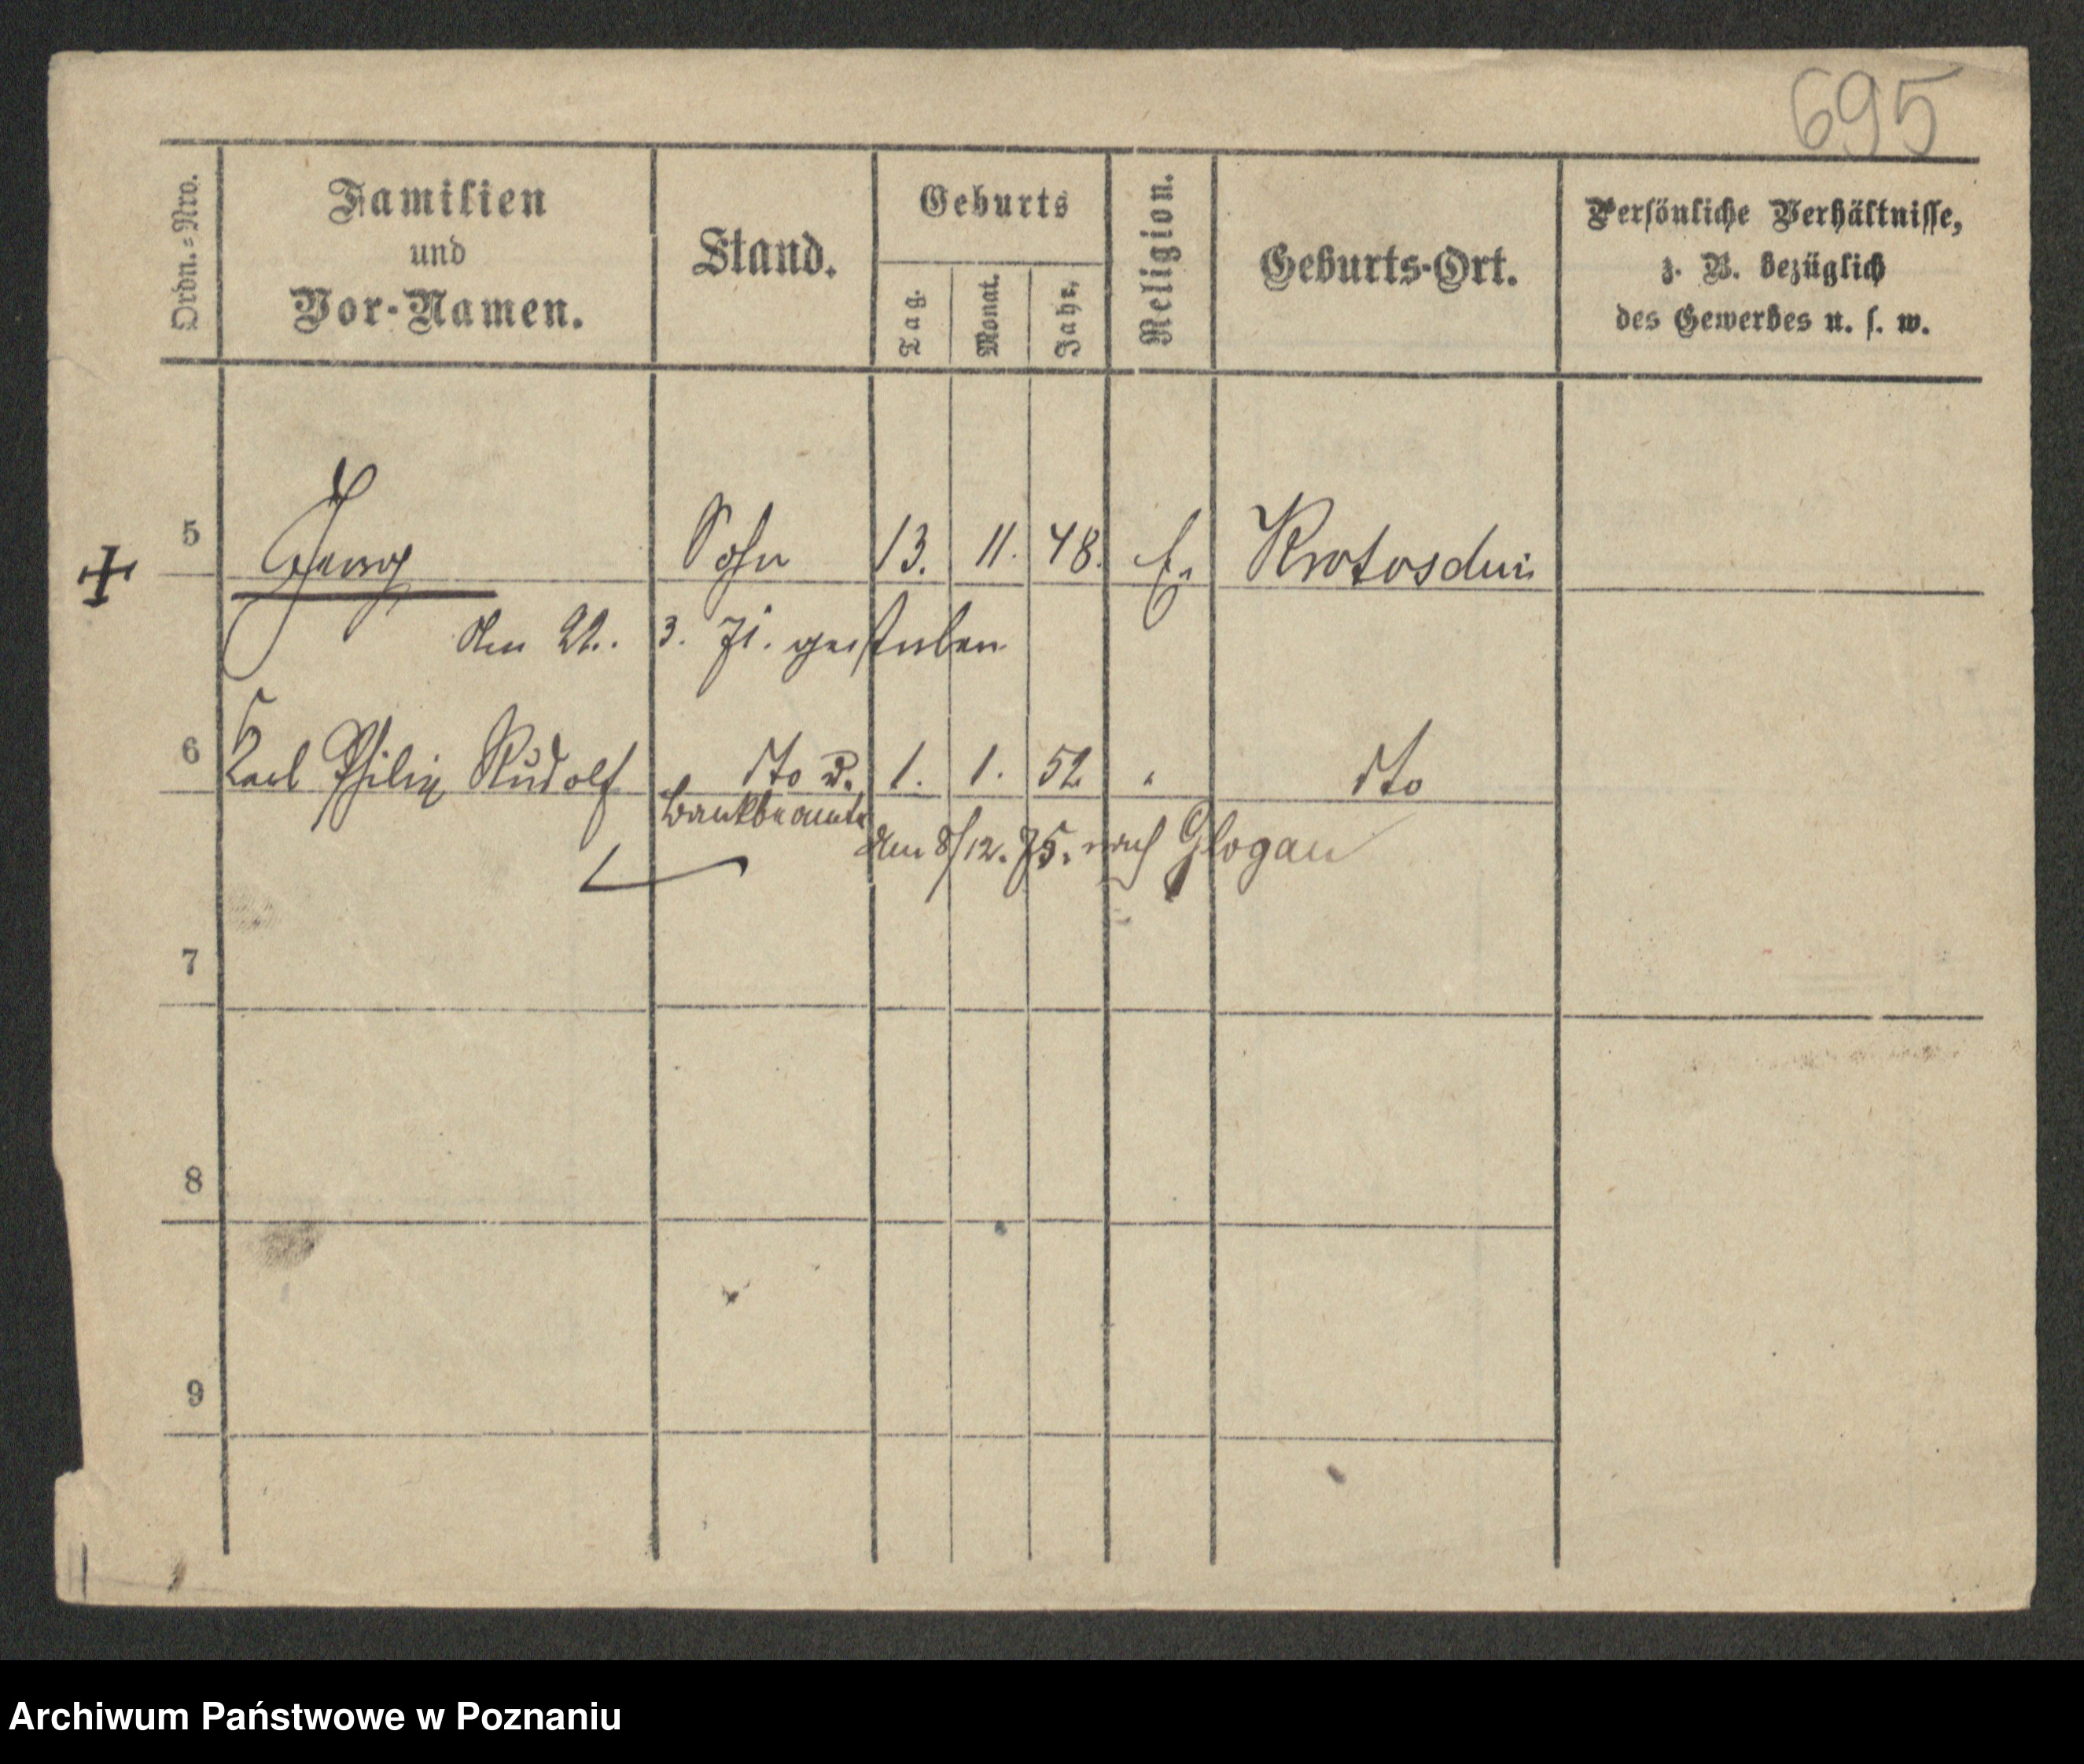 695
Ordn.=Nro.
Familien
und
Vor-Namen.
Stand.
Geburts
Tag.
Monat.
Jahr.
Religion.
Geburts-Ort.
Persönliche Verhältnisse,
z. B. bezüglich
des Gewerbes u. s. w.
5 Georg Sohn 13. 11. 48. E. Krotoschin
den 22. 3. 71. gestorben
6 Karl Philip Rudolf dto u. 1. 1. 52 " dto
Bankbeamte
den 8/12. 75. nach Glogau
7
8
9
Archiwum Państwowe w Poznaniu